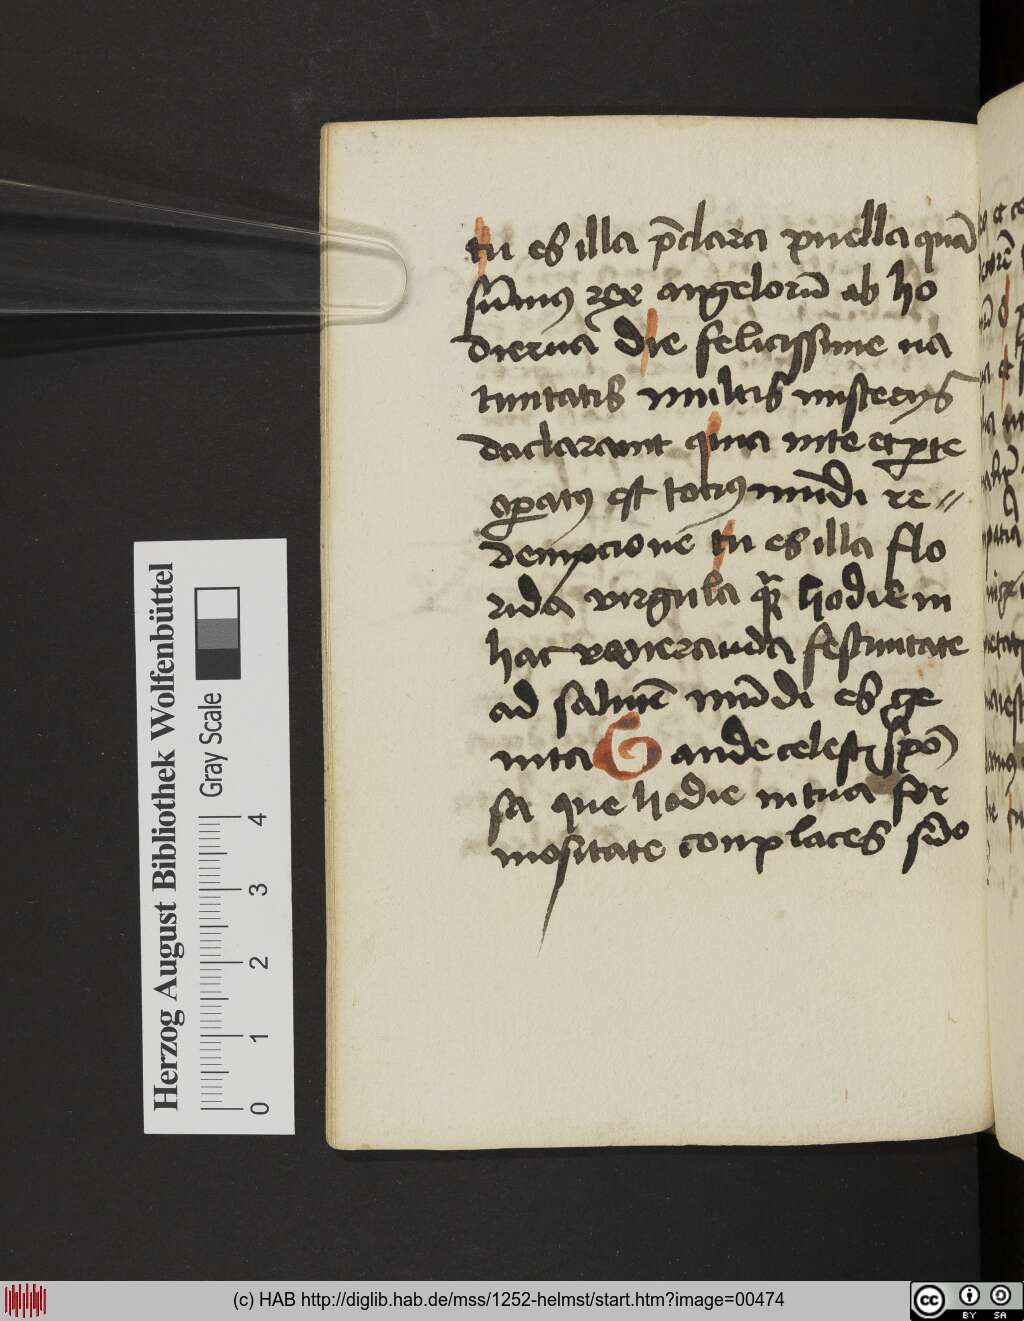 tu es illa p̄clara puella quā
sūmus rex angelorū ab ho
dierna die felicissime na
tiuitatis multis misterijs
daclarauit quia in te et per te
operatus est tocius mūdi re=
dempcionē tu es illa flo
rida virgula q̄ hodie in
hac veneranda festiuitate
ad salutē mūdi es ge
nita Gaude celestis spō
sa que hodie in tua for
mositate conplaces
Herzog August Bibliothek Wolfenbüttel
Gray Scale
0 1 2 3 4
(c) HAB http://diglib.hab.de/mss/1252-helmst/start.htm?image=00474
cc BY SA